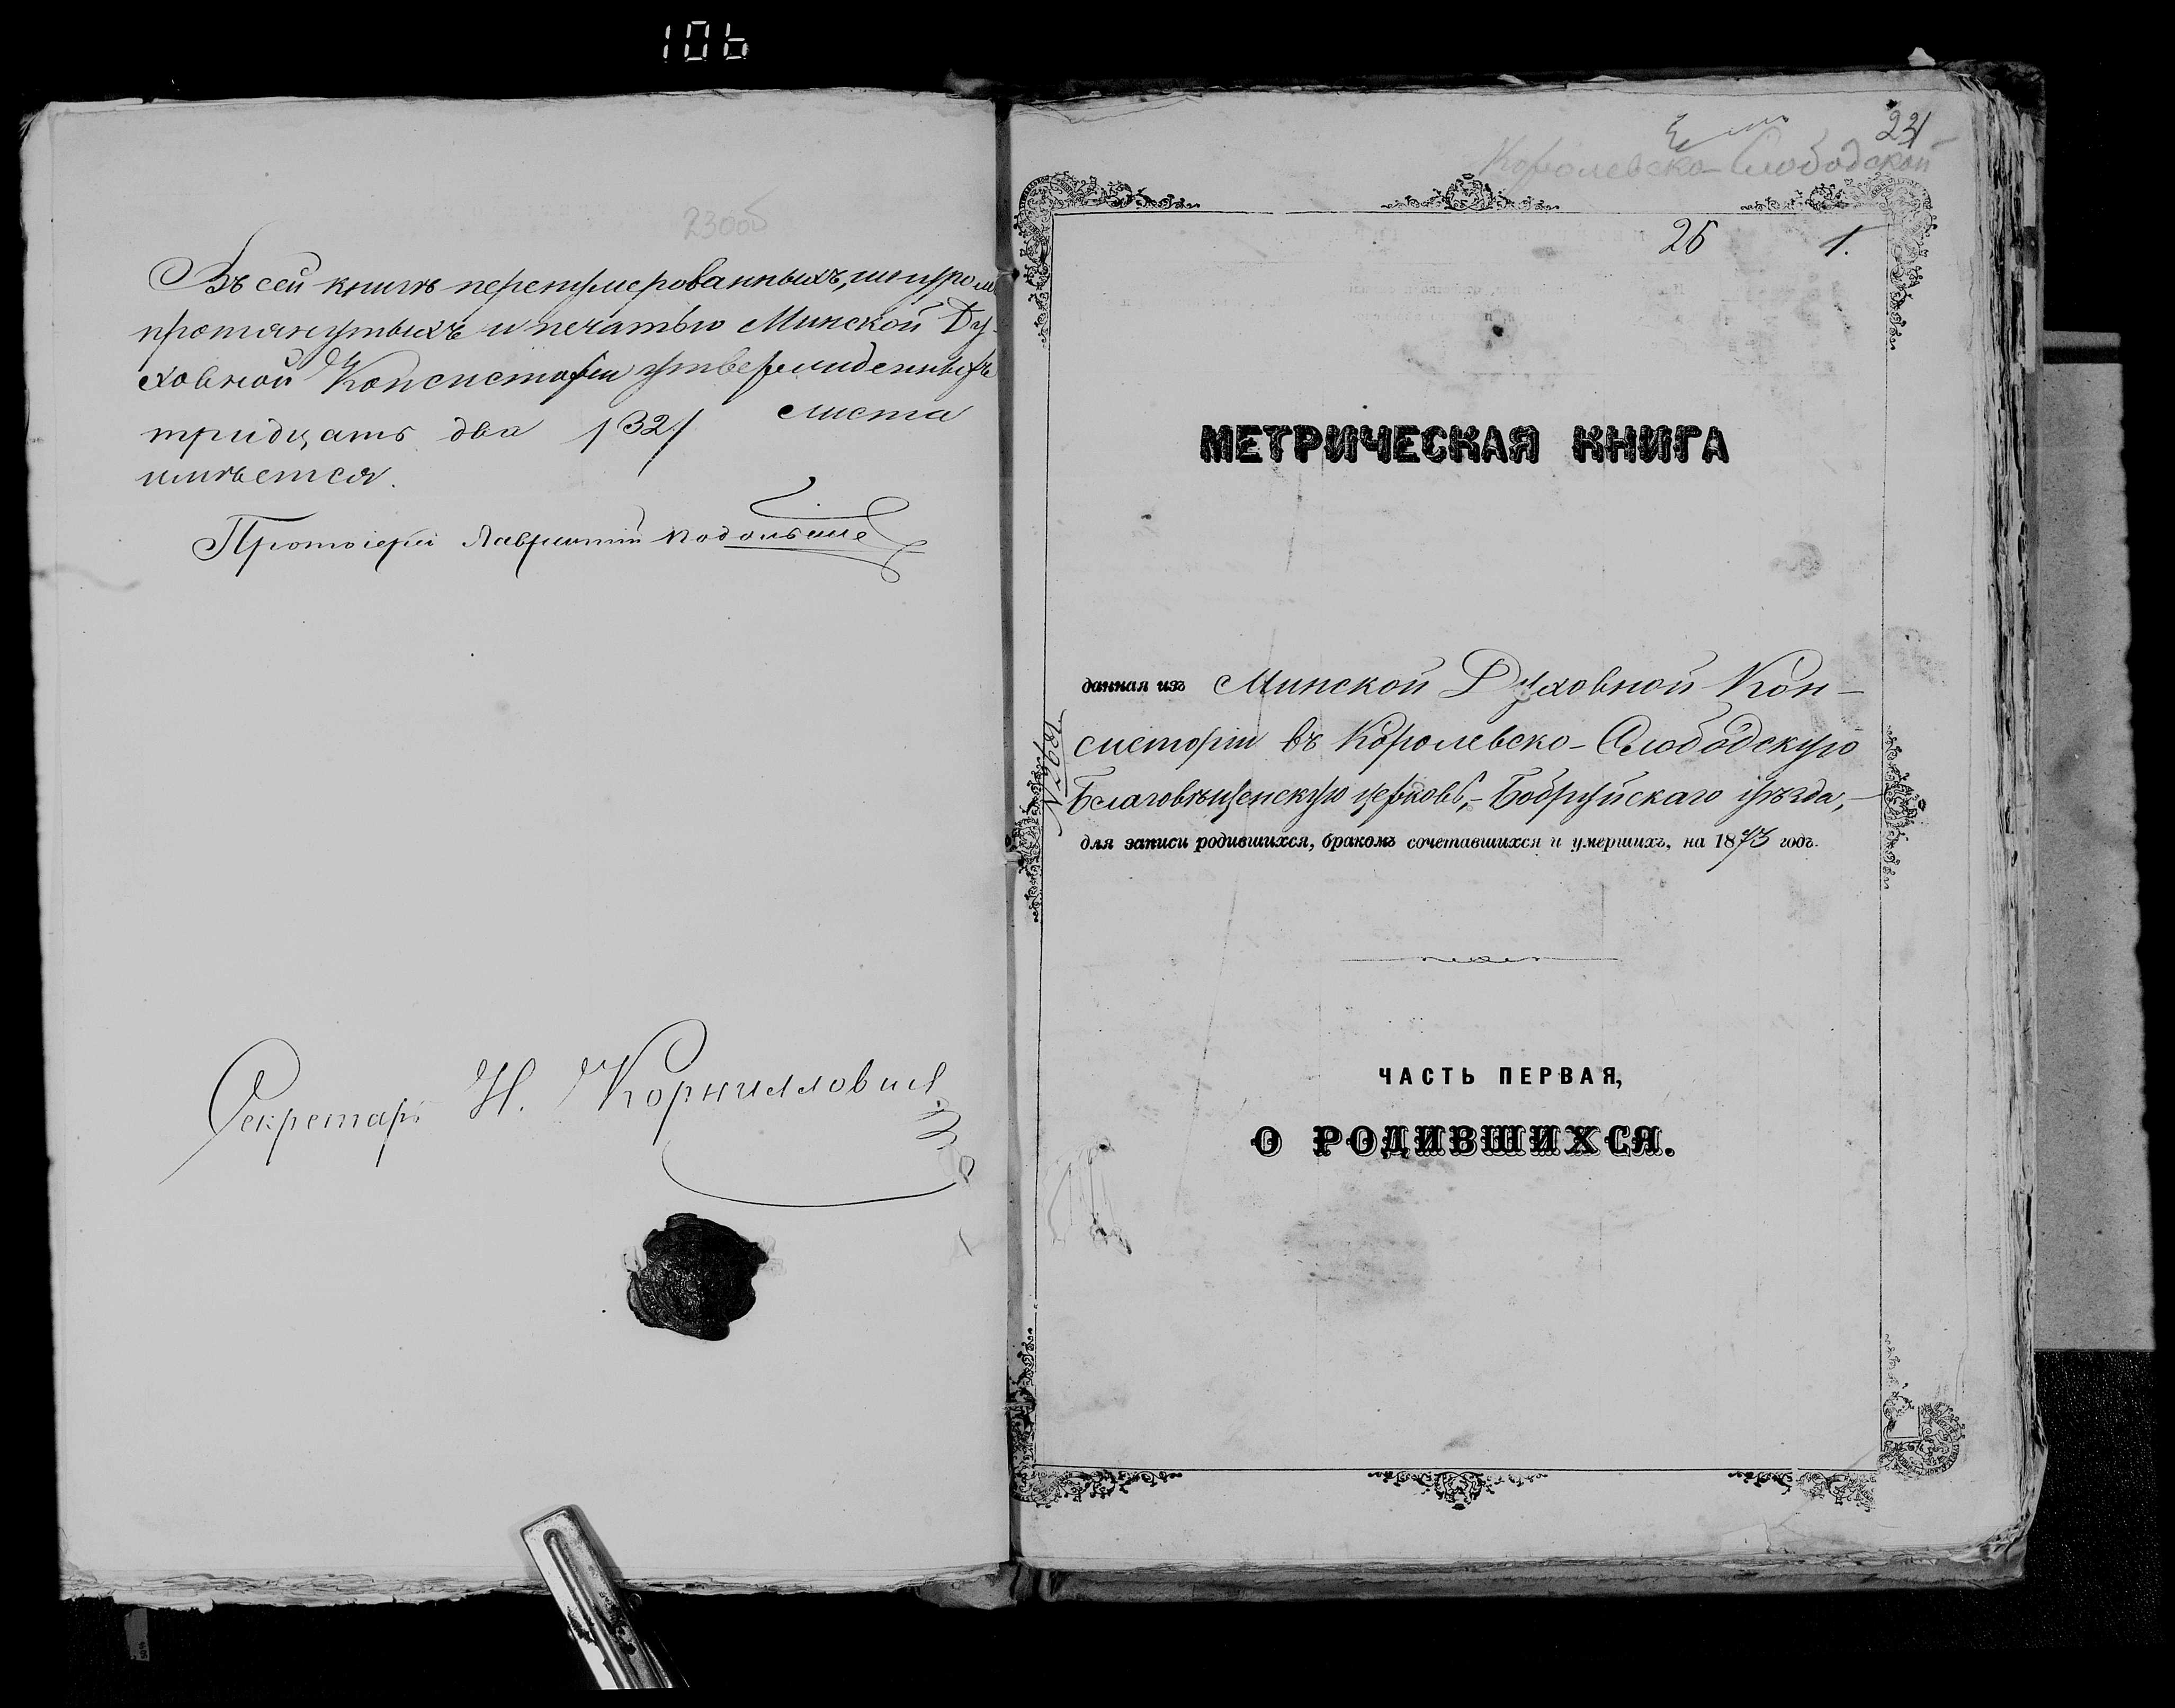 106
23об
Въ сей книгѣ перенумерованныхъ, шнуромъ
протянутыхъ и печатью Минской Ду-
ховной Консисторіи утвержденныхъ
тридцать два /32/ листа
имѣется.
Протоіерей Лаврентій Подольскій
Секретарь Н. Корнилловичъ
Королевско-Слободской
26 1.
МЕТРИЧЕСКАЯ КНИГА
данная изъ Минской Духовной Кон-
систоріи въ Королевско-Слободскую
Благовѣщенскую церковь,- Бобруйскаго уѣзда,-
для записи родившихся, бракомъ сочетавшихся и умершихъ, на 1873 годъ.
ЧАСТЬ ПЕРВАЯ,
О РОДИВШИХСЯ.